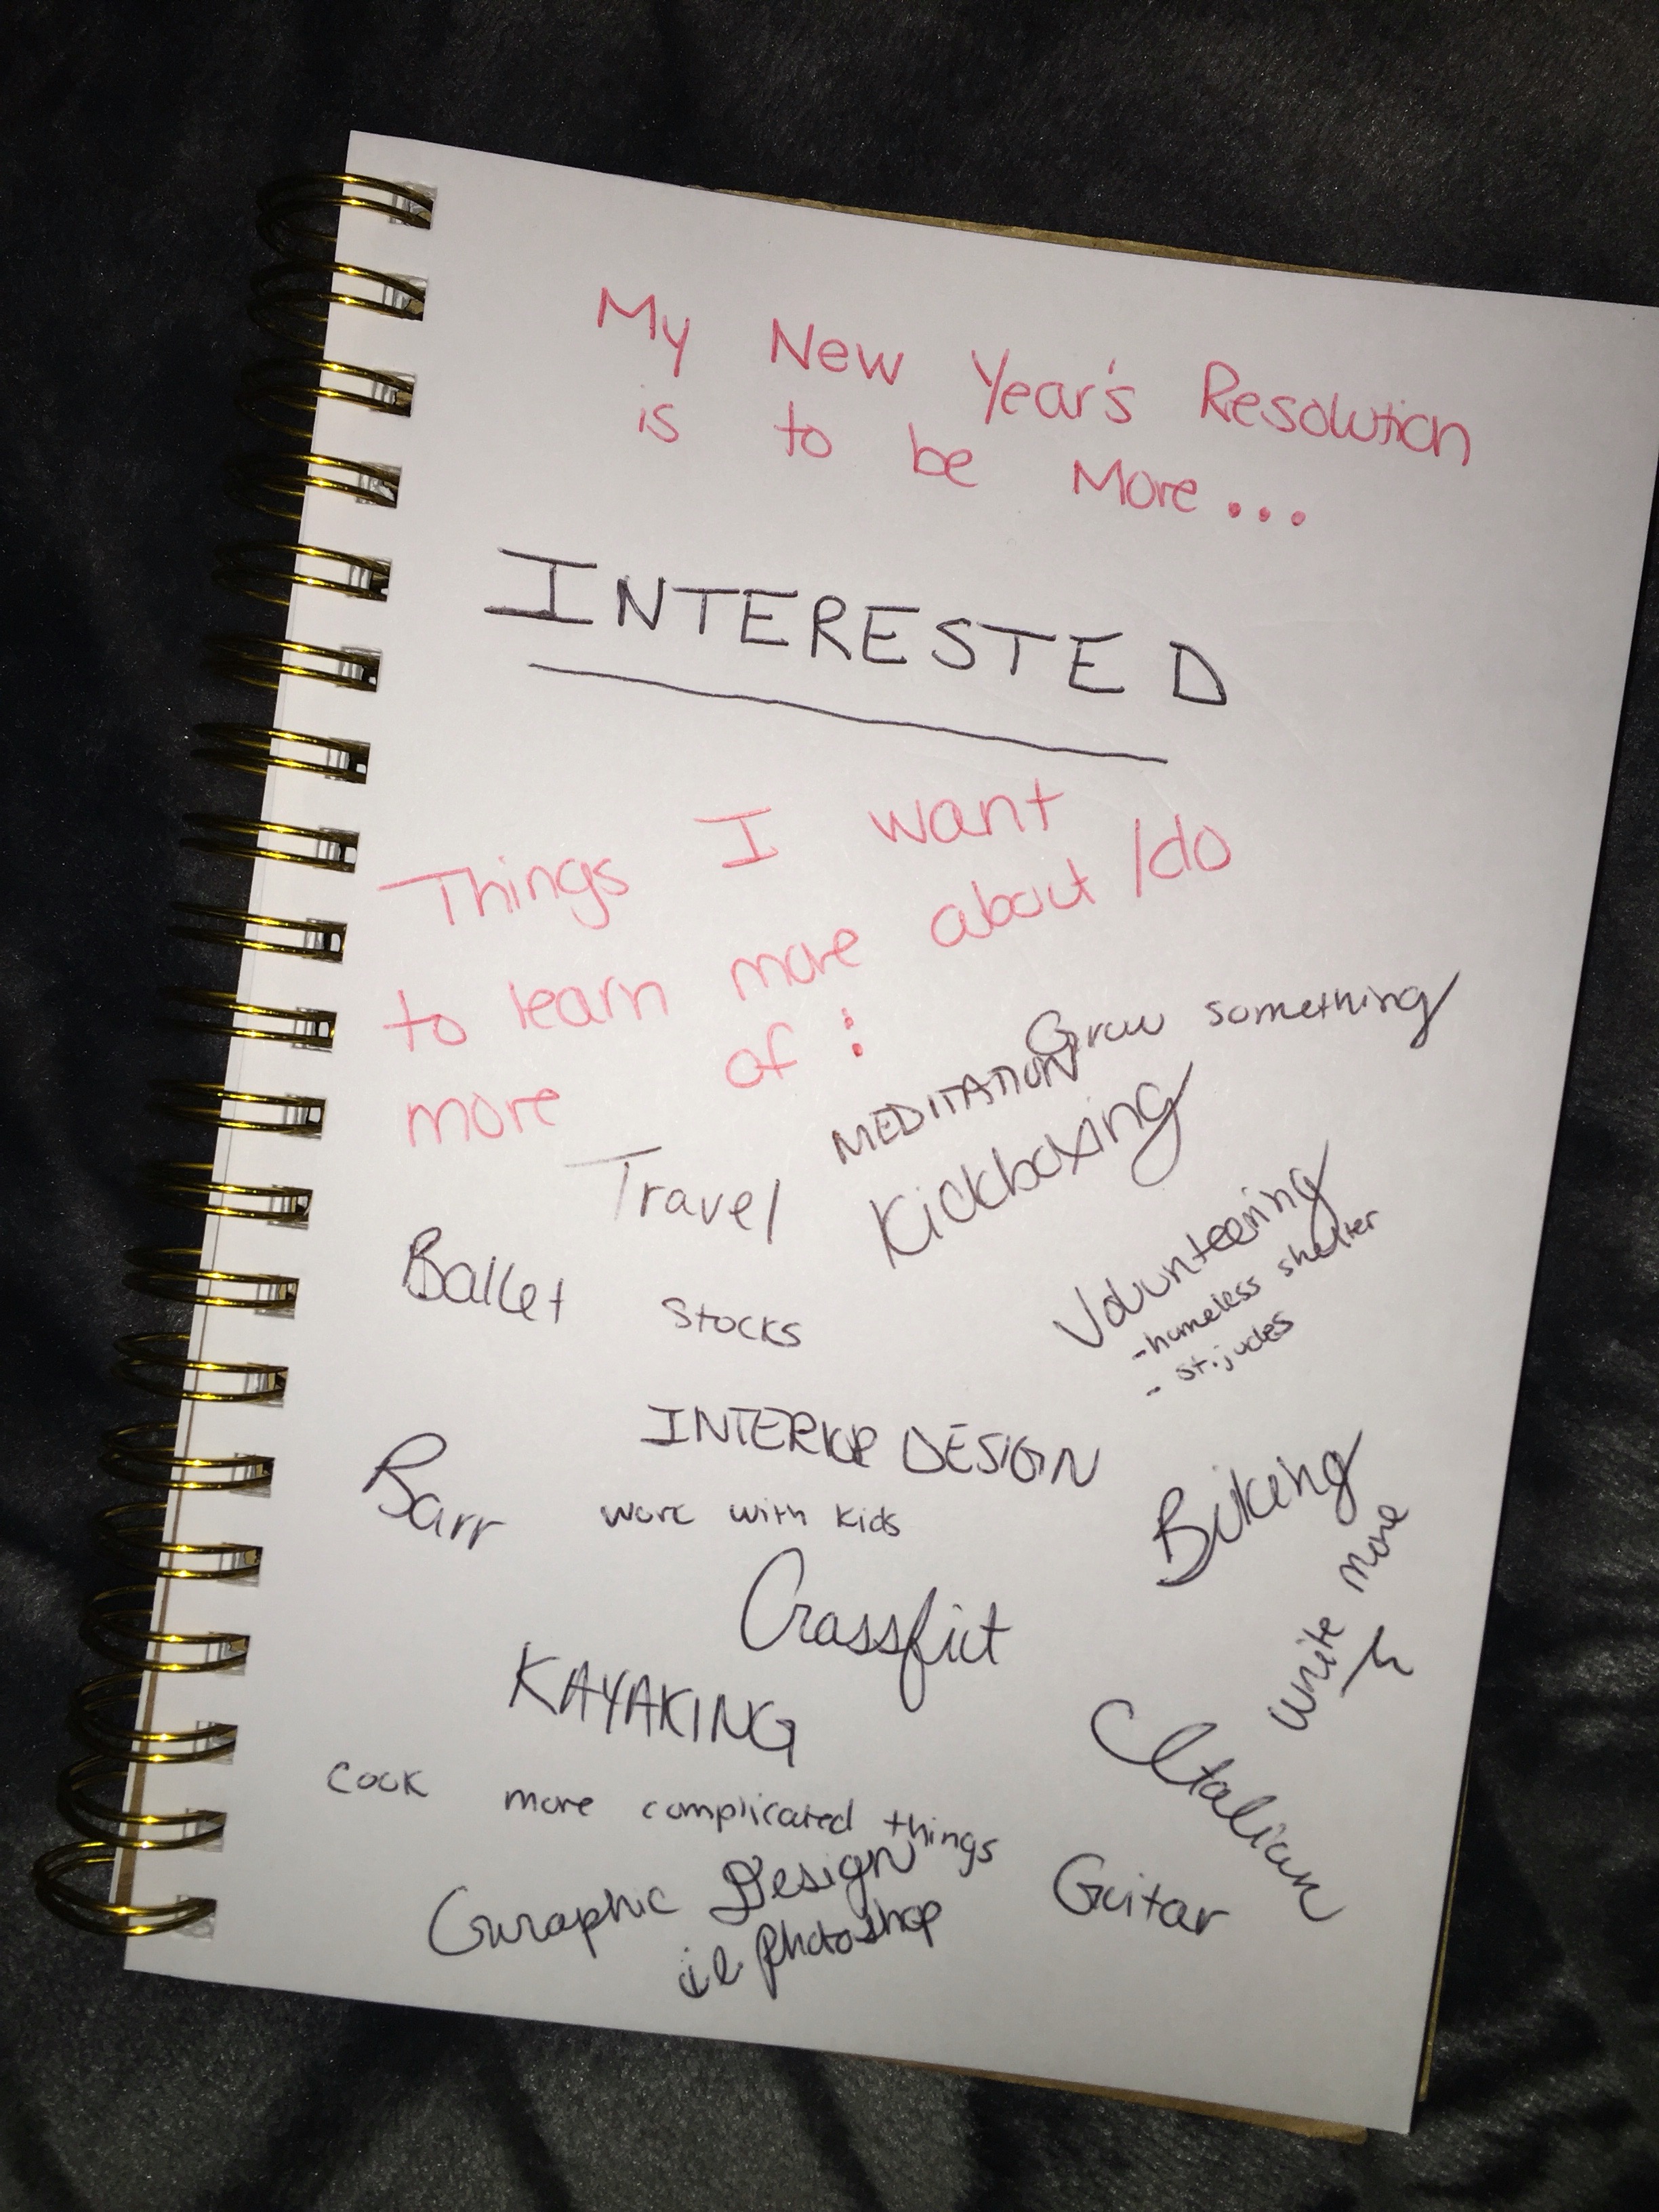 My New Year's Resolution
is to be More...
INTERESTED
Things I want
to learn more about /do
more of :
Grow something
MEDITATION
Travel
Kickboxing
Ballet
Stocks
Volunteering
- homeless shelter
- st. judes
INTERIOR DESIGN
Barr
work with kids
Biking
write more
Crossfit
KAYAKING
Italian
cook more complicated things
Graphic Design
i.e. photoshop
Guitar